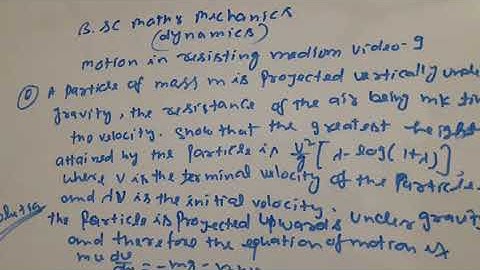 B.SC maths mechanics
(dynamics)
motion in resisting medium video-9
Q A particle of mass m is projected vertically under
gravity, the resistance of the air being mk tim
the velocity. Show that the greatest height
attained by the particle is V²/g [λ-log(1+λ)],
where V is the terminal velocity of the particle
and λV is the initial velocity.
the particle is projected upwards under gravity
and therefore the equation of motion is
mu du = -mg -